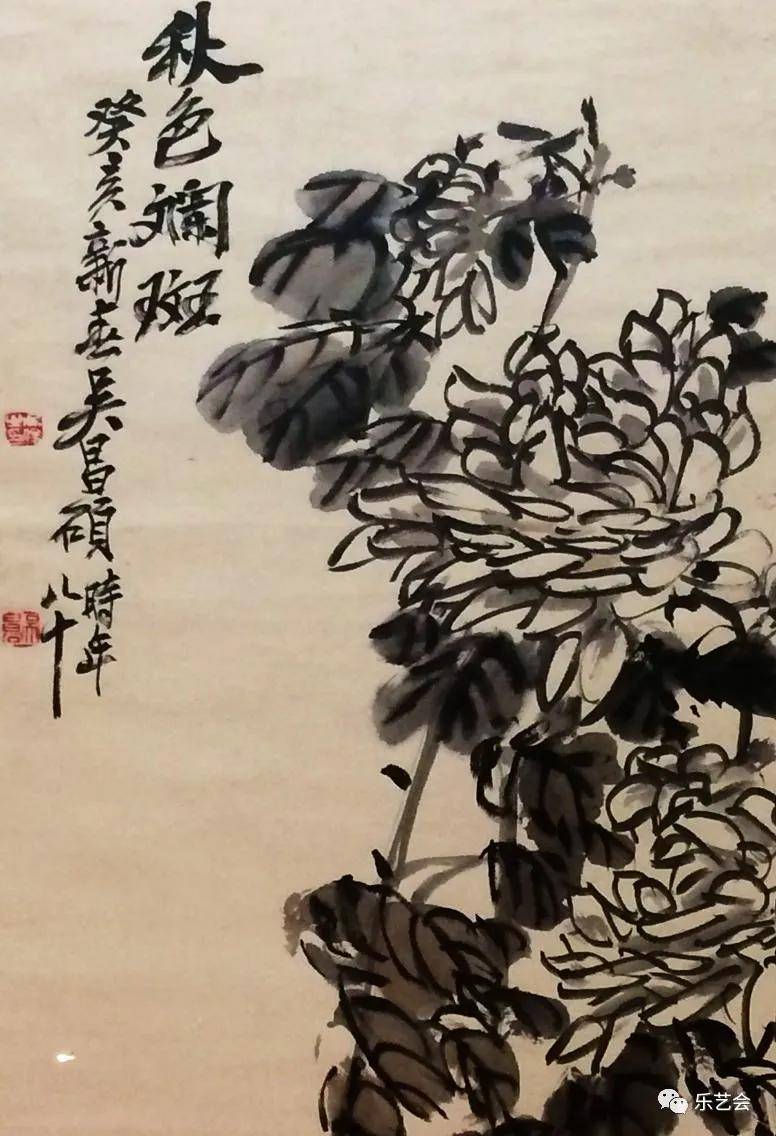 秋色斓斑
癸亥新春吴昌硕时年
八十
乐艺会